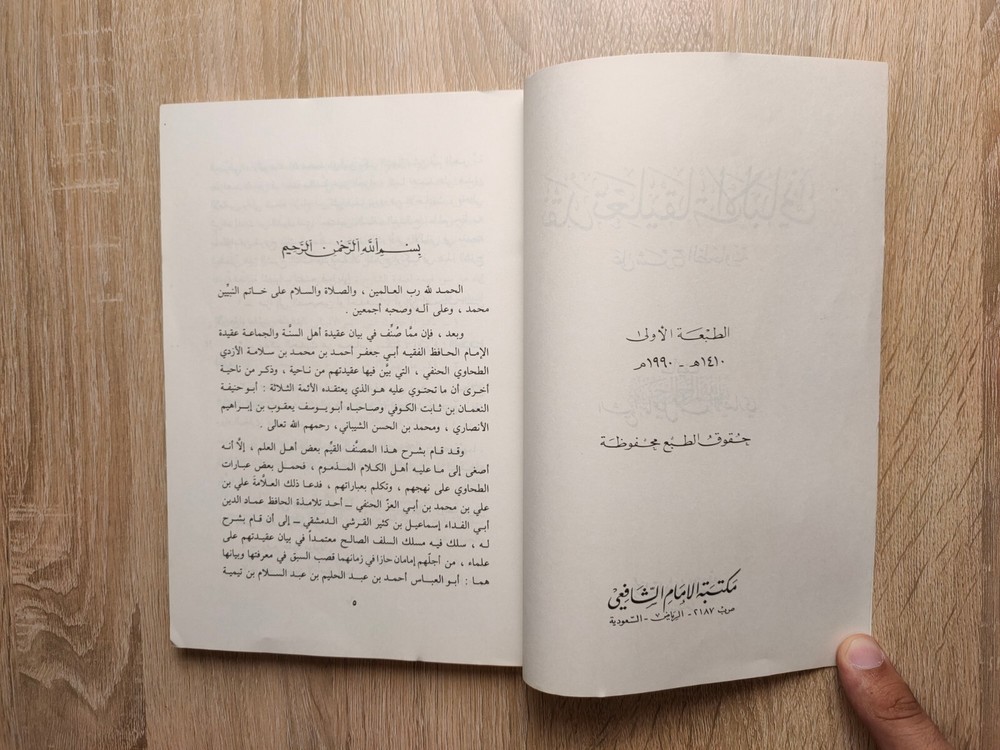 الطبعة الأولى
١٤١٠هـ - ١٩٩٠م
حقوق الطبع محفوظة
مكتبة الإمام الشافعي
ص.ب ٢١٨٧ - الرياض - السعودية
بسم الله الرحمن الرحيم
الحمد لله رب العالمين ، والصلاة والسلام على خاتم النبيِّين
محمد ، وعلى آله وصحبه أجمعين .
وبعد ، فإن ممَّا صُنِّف في بيان عقيدة أهل السنَّة والجماعة عقيدة
الإمام الحافظ الفقيه أبي جعفر أحمد بن محمد بن سلامة الأزدي
الطحاوي الحنفي ، التي بيَّن فيها عقيدتهم من ناحية ، وذكر من ناحية
أخرى أن ما تحتوي عليه هو الذي يعتقده الأئمة الثلاثة : أبو حنيفة
النعمان بن ثابت الكوفي وصاحباه أبو يوسف يعقوب بن إبراهيم
الأنصاري ، ومحمد بن الحسن الشيباني ، رحمهم الله تعالى .
وقد قام بشرح هذا المصنَّف القيِّم بعض أهل العلم ، إلَّا أنه
أصغى إلى ما عليه أهل الكلام المذموم ، فحمل بعض عبارات
الطحاوي على نهجهم ، وتكلم بعباراتهم ، فدعا ذلك العلَّامةَ علي بن
علي بن محمد بن أبي العزّ الحنفي ــ أحد تلامذة الحافظ عماد الدين
أبي الفداء إسماعيل بن كثير القرشي الدمشقي ــ إلى أن قام بشرح
له ، سلك فيه مسلك السلف الصالح معتمداً في بيان عقيدتهم على
علماء ، من أجلّهم إمامان حازا في زمانهما قصب السبق في معرفتها وبيانها
هما : أبو العباس أحمد بن عبد الحليم بن عبد السلام بن تيمية
٥